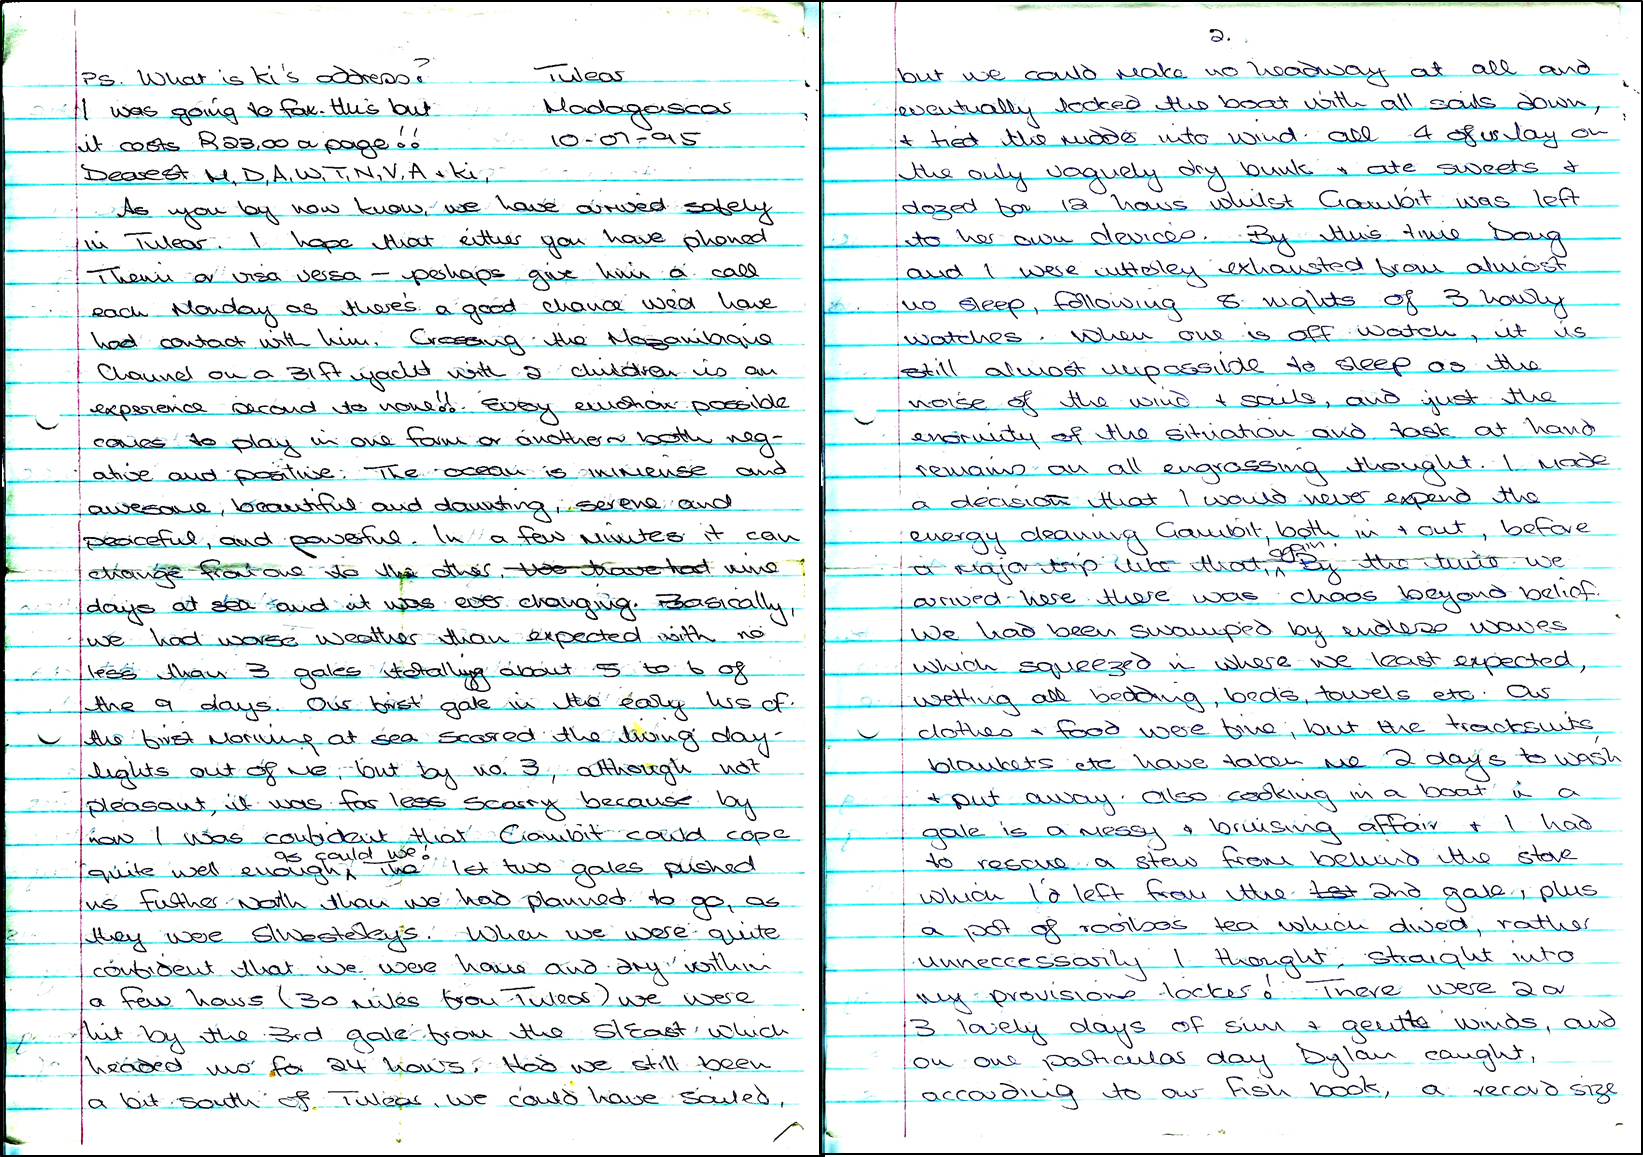 PS. What is Ki's address?
I was going to fax this but
it costs R23,00 a page!!
Tulear
Madagascar
10-07-95
Dearest M, D, A, W, T, N, V, A + Ki,
As you by now know, we have arrived safely
in Tulear. I hope that either you have phoned
or visa versa — perhaps give him a call
each Monday as there's a good chance we'd have
had contact with him. Crossing the Mozambique
Channel on a 31ft yacht with 2 children is an
experience second to none!!. Every emotion possible
comes to play in one form or another both neg-
ative and positive. The ocean is immense and
awesome, beautiful and daunting, serene and
peaceful, and powerful. In a few minutes it can
change from one to the other. We have had nine
days at sea and it was ever changing. Basically,
we had worse weather than expected with no
less than 3 gales totalling about 5 to 6 of
the 9 days. Our first gale in the early hrs of
the first morning at sea scared the living day-
lights out of me, but by no. 3, although not
pleasant, it was far less scarry because by
now I was confident that Gambit could cope
quite well enough, as could we! The 1st two gales pushed
us further North than we had planned to go, as
they were S/Westerleys. When we were quite
confident that we were home and dry within
a few hours (30 miles from Tulear) we were
hit by the 3rd gale from the S/East which
headed us for 24 hours. Had we still been
a bit south of Tulear, we could have sailed,
2.
but we could make no headway at all and
eventually locked the boat with all sails down,
+ tied the rudder into wind. all 4 of us lay on
the only vaguely dry bunk + ate sweets +
dozed for 12 hours whilst Gambit was left
to her own devices. By this time Doug
and I were utterley exhausted from almost
no sleep, following 8 nights of 3 hourly
watches. When one is off watch, it is
still almost impossible to sleep as the
noise of the wind + sails, and just the
enormity of the situation and task at hand
remains an all engrossing thought. I made
a decision that I would never expend the
energy cleaning Gambit, both in + out, before
a major trip like that, again. By the time we
arrived here there was chaos beyond belief.
We had been swamped by endless waves
which squeezed in where we least expected,
wetting all bedding, beds, towels etc. Our
clothes + food were fine, but the tracksuits,
blankets etc have taken me 2 days to wash
+ put away. Also cooking in a boat in a
gale is a messy + bruising affair + I had
to rescue a stew from behind the stove
which I'd left from the 1st 2nd gale, plus
a pot of rooibos tea which dived, rather
unneccessarily I thought, straight into
my provisions locker! There were 2 or
3 lovely days of sun + gentle winds, and
on one particular day Dylan caught,
according to our fish book, a record size